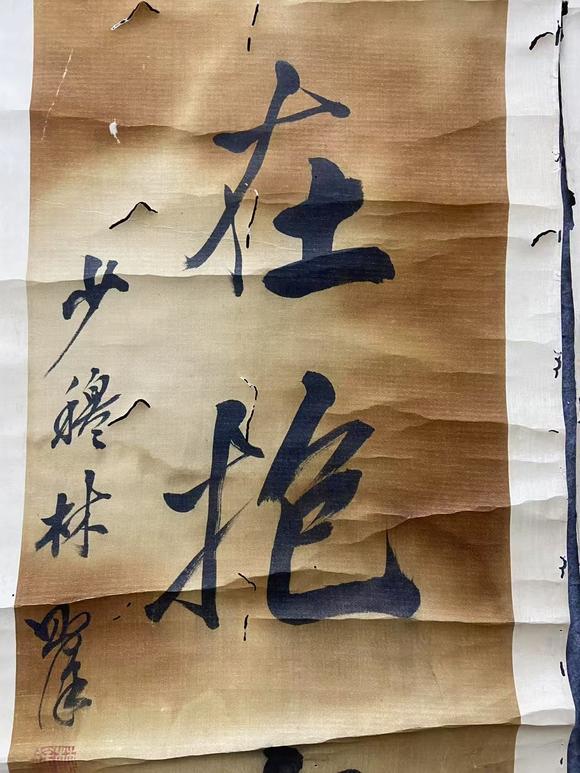 在抱
少穆林則徐